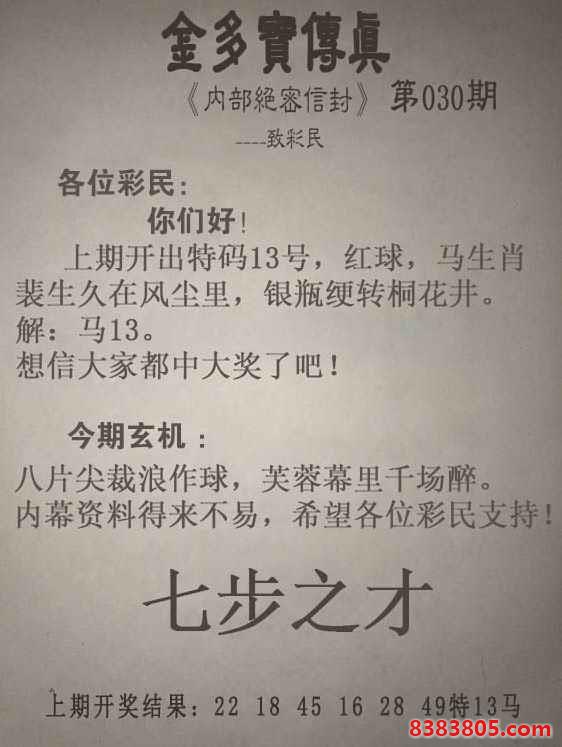 金多寶傳眞
《内部絕密信封》 第030期
----致彩民
各位彩民:
你们好!
上期开出特码13号，红球，马生肖
裴生久在风尘里，银瓶绠转桐花井。
解：马13。
想信大家都中大奖了吧！
今期玄机：
八片尖裁浪作球，芙蓉幕里千场醉。
内幕资料得来不易，希望各位彩民支持！
七步之才
上期开奖结果：22 18 45 16 28 49特13马
8383805.com